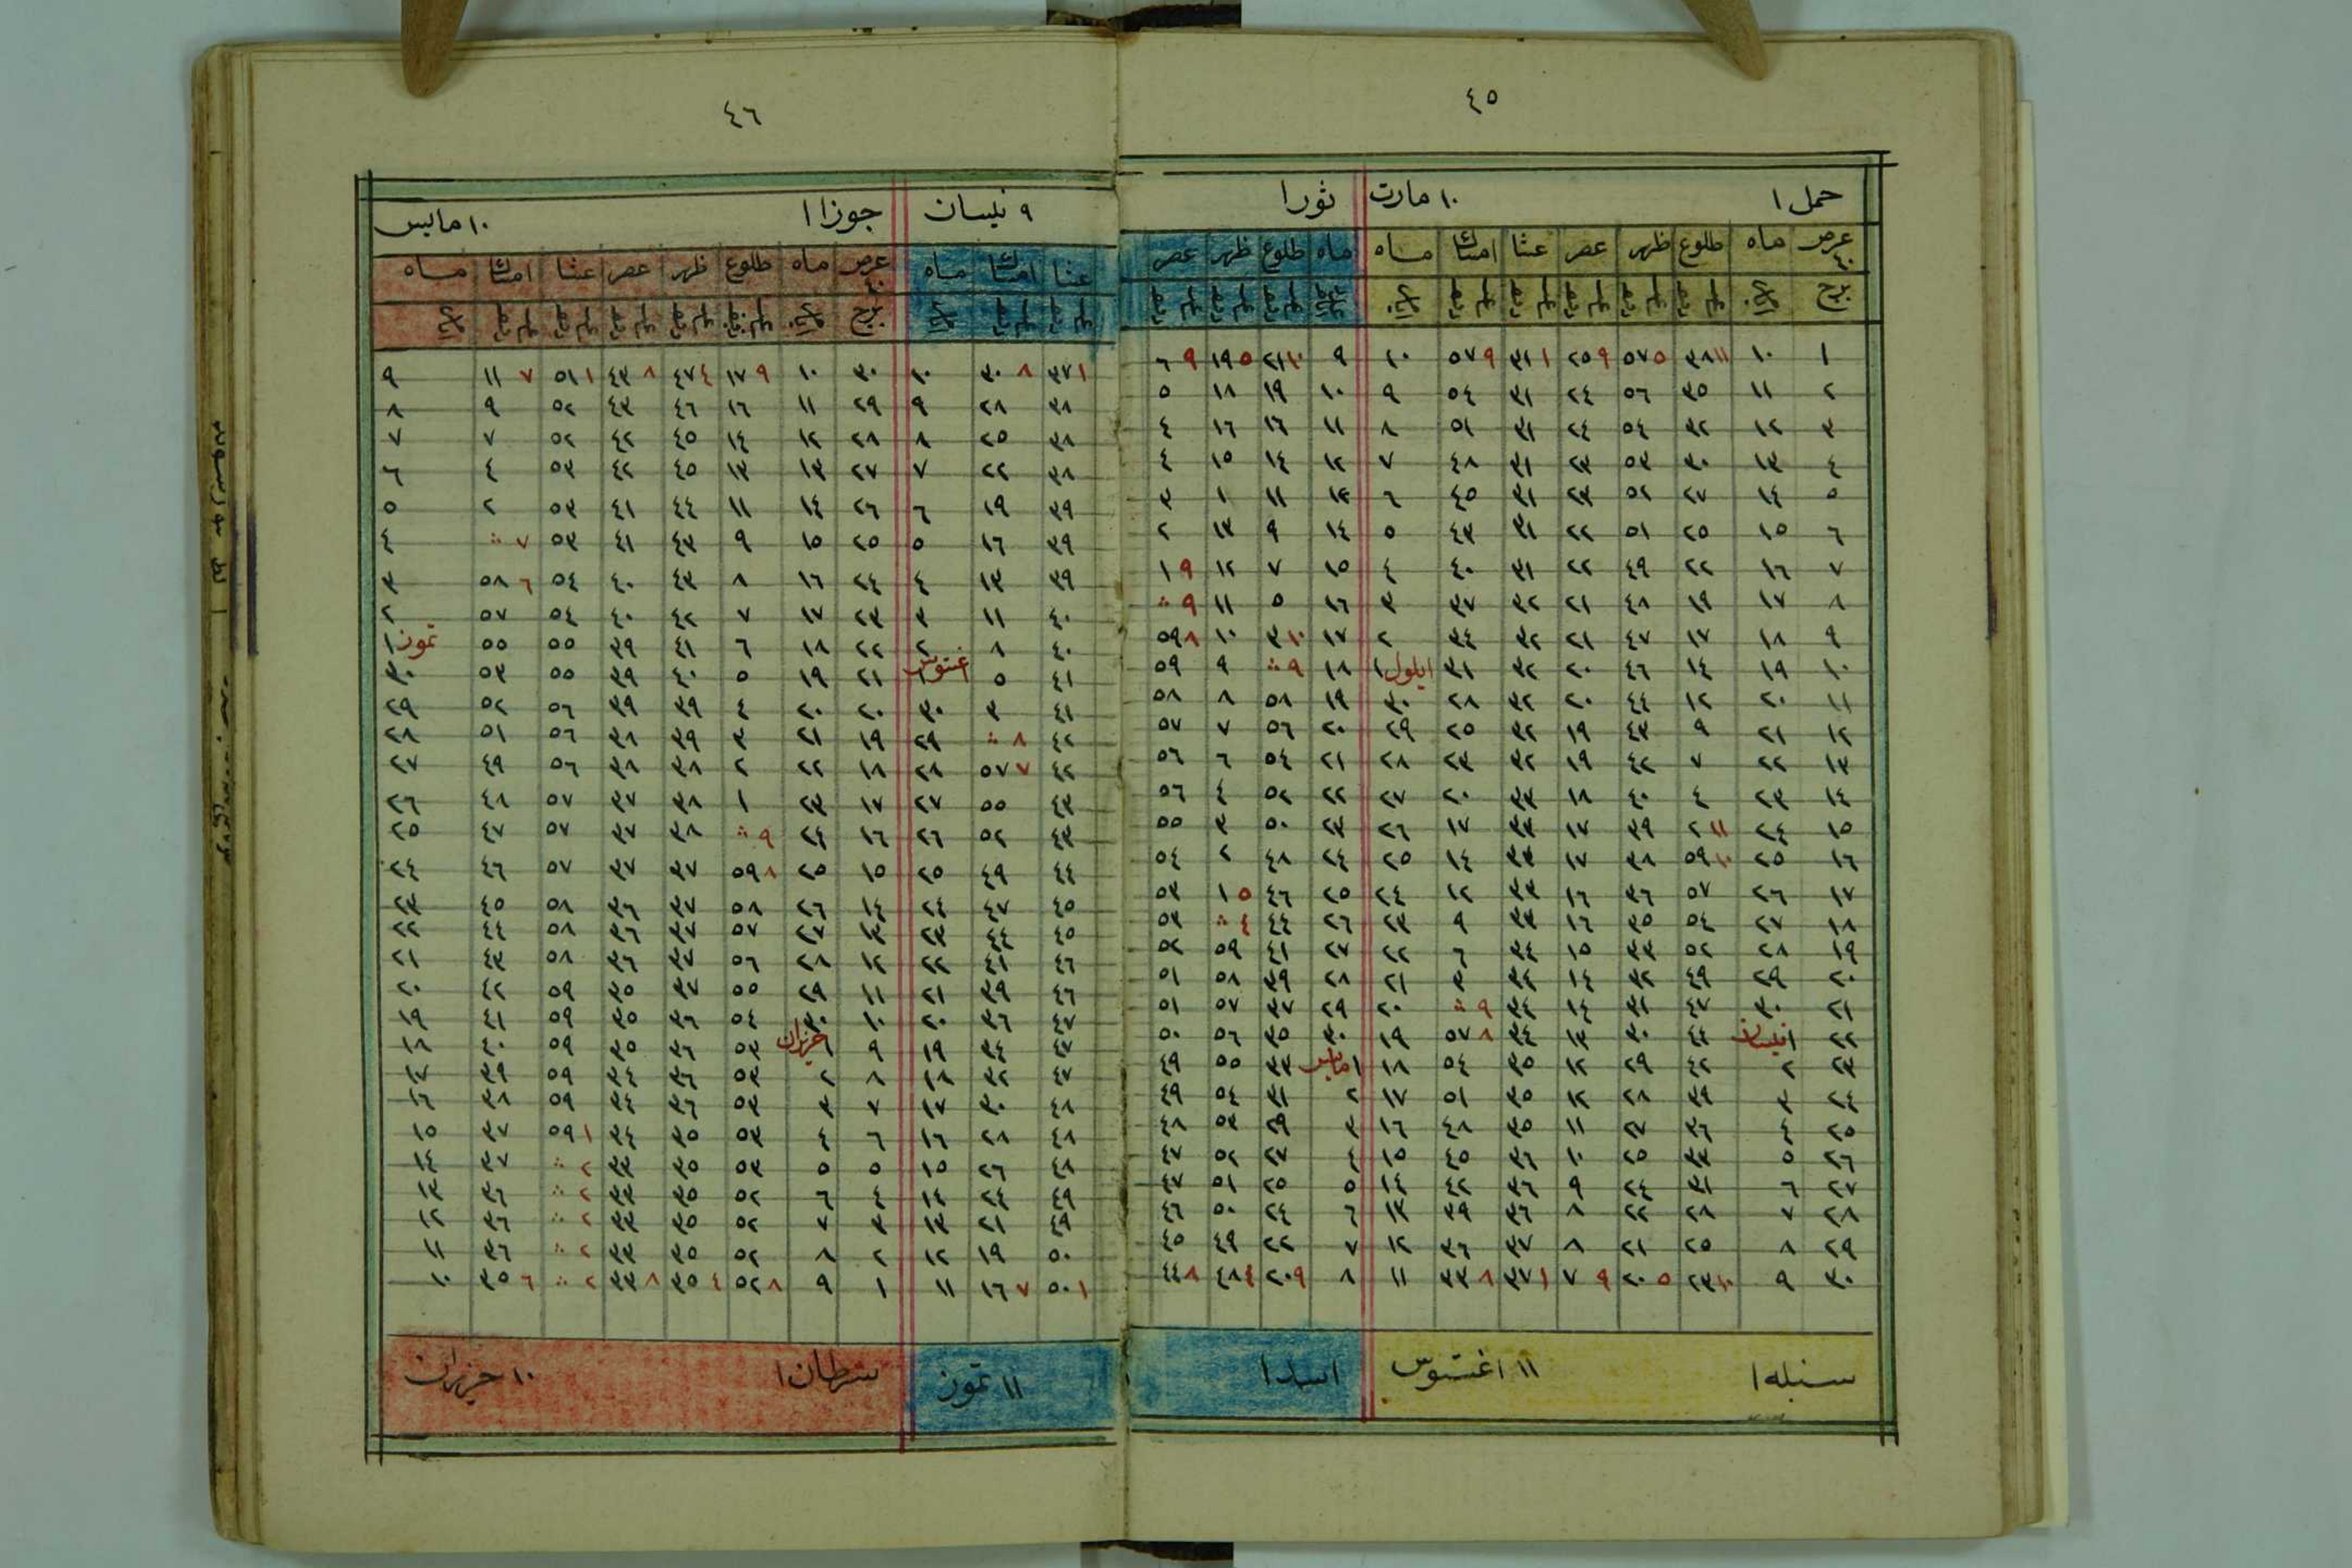 ٤٥
حمل ١ ١٠ مارت ثور ١
عرض ٤٠ ماه طلوع ظهر عصر عشا امساك ماه ماه طلوع ظهر عصر
برج
١ ١٠ ١١ ٣٨ ٥ ٥٧ ٩ ٢٥ ١ ٣١ ٩ ٥٧ ١٠ ٩ ١٠ ٢١ ٥ ١٩ ٩ ٦
٢ ١١ ٣٥ ٥٦ ٢٤ ٣١ ٥٤ ٩ ١٠ ١٩ ١٨ ٥
٣ ١٢ ٣٢ ٥٤ ٢٤ ٣١ ٥١ ٨ ١١ ١٦ ١٦ ٤
٤ ١٣ ٣٠ ٥٣ ٢٣ ٣١ ٤٨ ٧ ١٢ ١٤ ١٥ ٤
٥ ١٤ ٢٧ ٥٢ ٢٣ ٣١ ٤٥ ٦ ١٣ ١١ ١ ٣
٦ ١٥ ٢٥ ٥١ ٢٢ ٣١ ٤٣ ٥ ١٤ ٩ ١٣ ٢
٧ ١٦ ٢٢ ٤٩ ٢٢ ٣١ ٤٠ ٤ ١٥ ٧ ١٢ ٩ ١
٨ ١٧ ١٩ ٤٨ ٢١ ٣٢ ٣٧ ٣ ١٦ ٥ ١١ ٩ ∴
٩ ١٨ ١٧ ٤٧ ٢١ ٣٢ ٣٤ ٢ ١٧ ١٠ ٣ ١٠ ٨ ٥٩
١٠ ١٩ ١٤ ٤٦ ٢٠ ٣٢ ٣١ ايلول ١ ١٨ ٩ ∴ ٩ ٥٩
١١ ٢٠ ١٢ ٤٤ ٢٠ ٣٢ ٢٨ ٣٠ ١٩ ٥٨ ٨ ٥٨
١٢ ٢١ ٩ ٤٣ ١٩ ٣٢ ٢٥ ٢٩ ٢٠ ٥٦ ٧ ٥٧
١٣ ٢٢ ٧ ٤٢ ١٩ ٣٢ ٢٣ ٢٨ ٢١ ٥٤ ٦ ٥٦
١٤ ٢٣ ٤ ٤٠ ١٨ ٣٣ ٢٠ ٢٧ ٢٢ ٥٢ ٤ ٥٦
١٥ ٢٤ ١١ ٢ ٣٩ ١٧ ٣٣ ١٧ ٢٦ ٢٣ ٥٠ ٣ ٥٥
١٦ ٢٥ ١٠ ٥٩ ٣٨ ١٧ ٣٣ ١٤ ٢٥ ٢٤ ٤٨ ٢ ٥٤
١٧ ٢٦ ٥٧ ٣٦ ١٦ ٣٣ ١٢ ٢٤ ٢٥ ٤٦ ٥ ١ ٥٣
١٨ ٢٧ ٥٤ ٣٥ ١٦ ٣٣ ٩ ٢٣ ٢٦ ٤٤ ٤ ∴ ٥٣
١٩ ٢٨ ٥٢ ٣٣ ١٥ ٣٤ ٦ ٢٢ ٢٧ ٤١ ٥٩ ٥٢
٢٠ ٢٩ ٤٩ ٣٢ ١٤ ٣٤ ٣ ٢١ ٢٨ ٣٩ ٥٨ ٥١
٢١ ٣٠ ٤٧ ٣١ ١٤ ٣٤ ٩ ∴ ٢٠ ٢٩ ٣٧ ٥٧ ٥١
٢٢ ١ نيسان ٤٤ ٣٠ ١٣ ٣٤ ٨ ٥٧ ١٩ ٣٠ ٣٥ ٥٦ ٥٠
٢٣ ٢ ٤٢ ٢٩ ١٢ ٣٥ ٥٤ ١٨ ١ مايس ٣٣ ٥٥ ٤٩
٢٤ ٣ ٣٩ ٢٨ ١٢ ٣٥ ٥١ ١٧ ٢ ٣١ ٥٤ ٤٩
٢٥ ٤ ٣٦ ٢٧ ١١ ٣٥ ٤٨ ١٦ ٣ ٢٩ ٥٣ ٤٨
٢٦ ٥ ٣٣ ٢٥ ١٠ ٣٦ ٤٥ ١٥ ٤ ٢٧ ٥٢ ٤٧
٢٧ ٦ ٣١ ٢٤ ٩ ٣٦ ٤٢ ١٤ ٥ ٢٥ ٥١ ٤٧
٢٨ ٧ ٢٨ ٢٢ ٨ ٣٦ ٣٩ ١٣ ٦ ٢٤ ٥٠ ٤٦
٢٩ ٨ ٢٥ ٢١ ٨ ٣٧ ٣٦ ١٢ ٧ ٢٢ ٤٩ ٤٥
٣٠ ٩ ١٠ ٢٣ ٥ ٢٠ ٩ ٧ ١ ٣٧ ٨ ٣٣ ١١ ٨ ٩ ٢٠ ٤ ٤٨ ٨ ٤٤
سنبله ١ ١١ اغستوس اسد ١
٤٦
٩ نيسان جوزا ١ ١٠ مايس
عشا امساك ماه عرض ٤٠ ماه طلوع ظهر عصر عشا امساك ماه
برج
١ ٣٧ ٨ ٣٠ ١٠ ٣٠ ١٠ ٩ ١٧ ٤ ٤٧ ٨ ٤٣ ١ ٥١ ٧ ١١ ٩
٣٨ ٢٨ ٩ ٢٩ ١١ ١٦ ٤٦ ٤٣ ٥٢ ٩ ٨
٣٨ ٢٥ ٨ ٢٨ ١٢ ١٤ ٤٥ ٤٢ ٥٢ ٧ ٧
٣٨ ٢٢ ٧ ٢٧ ١٣ ١٣ ٤٥ ٤٢ ٥٣ ٤ ٦
٣٩ ١٩ ٦ ٢٦ ١٤ ١١ ٤٤ ٤١ ٥٣ ٢ ٥
٣٩ ١٦ ٥ ٢٥ ١٥ ٩ ٤٣ ٤١ ٥٣ ٧ ∴ ٤
٣٩ ١٣ ٤ ٢٤ ١٦ ٨ ٤٣ ٤٠ ٥٤ ٦ ٥٨ ٣
٤٠ ١١ ٣ ٢٣ ١٧ ٧ ٤٢ ٤٠ ٥٤ ٥٧ ٢
٤٠ ٨ ٢ ٢٢ ١٨ ٦ ٤١ ٣٩ ٥٥ ٥٥ تموز ١
٤١ ٥ اغستوس ١ ٢١ ١٩ ٥ ٤٠ ٣٩ ٥٥ ٥٣ ٣٠
٤١ ٣ ٣٠ ٢٠ ٢٠ ٤ ٣٩ ٣٩ ٥٦ ٥٢ ٢٩
٤٢ ٨ ∴ ٢٩ ١٩ ٢١ ٣ ٣٩ ٣٨ ٥٦ ٥١ ٢٨
٤٢ ٧ ٥٧ ٢٨ ١٨ ٢٢ ٢ ٣٨ ٣٨ ٥٦ ٤٩ ٢٧
٤٣ ٥٥ ٢٧ ١٧ ٢٣ ١ ٣٨ ٣٧ ٥٧ ٤٨ ٢٦
٤٣ ٥٢ ٢٦ ١٦ ٢٤ ٩ ∴ ٣٨ ٣٧ ٥٧ ٤٧ ٢٥
٤٤ ٤٩ ٢٥ ١٥ ٢٥ ٨ ٥٩ ٣٧ ٣٧ ٥٧ ٤٦ ٢٤
٤٥ ٤٧ ٢٤ ١٤ ٢٦ ٥٨ ٣٧ ٣٦ ٥٨ ٤٥ ٢٣
٤٥ ٤٤ ٢٣ ١٣ ٢٧ ٥٧ ٣٧ ٣٦ ٥٨ ٤٤ ٢٢
٤٦ ٤١ ٢٢ ١٢ ٢٨ ٥٦ ٣٧ ٣٦ ٥٨ ٤٣ ٢١
٤٦ ٣٩ ٢١ ١١ ٢٩ ٥٥ ٣٧ ٣٥ ٥٩ ٤٢ ٢٠
٤٧ ٣٦ ٢٠ ١٠ ٣٠ ٥٤ ٣٦ ٣٥ ٥٩ ٤١ ١٩
٤٧ ٣٤ ١٩ ٩ ١ حزيران ٥٣ ٣٦ ٣٥ ٥٩ ٤٠ ١٨
٤٧ ٣٢ ١٨ ٨ ٢ ٥٣ ٣٦ ٣٤ ٥٩ ٣٩ ١٧
٤٨ ٣٠ ١٧ ٧ ٣ ٥٣ ٣٦ ٣٤ ٥٩ ٣٨ ١٦
٤٨ ٢٨ ١٦ ٦ ٤ ٥٣ ٣٥ ٣٤ ١ ٥٩ ٣٧ ١٥
٤٨ ٢٦ ١٥ ٥ ٥ ٥٣ ٣٥ ٣٣ ٢ ∴ ٣٧ ١٤
٤٩ ٢٤ ١٤ ٤ ٦ ٥٢ ٣٥ ٣٣ ٢ ∴ ٣٦ ١٣
٤٩ ٢١ ١٣ ٣ ٧ ٥٢ ٣٥ ٣٣ ٢ ∴ ٣٦ ١٢
٥٠ ١٩ ١٢ ٢ ٨ ٥٢ ٣٥ ٣٣ ٢ ∴ ٣٦ ١١
١ ٥٠ ٧ ١٦ ١١ ١ ٩ ٨ ٥٢ ٤ ٣٥ ٨ ٣٣ ٢ ∴ ٦ ٣٥ ١٠
١١ تموز سرطان ١ ١٠ حزيران